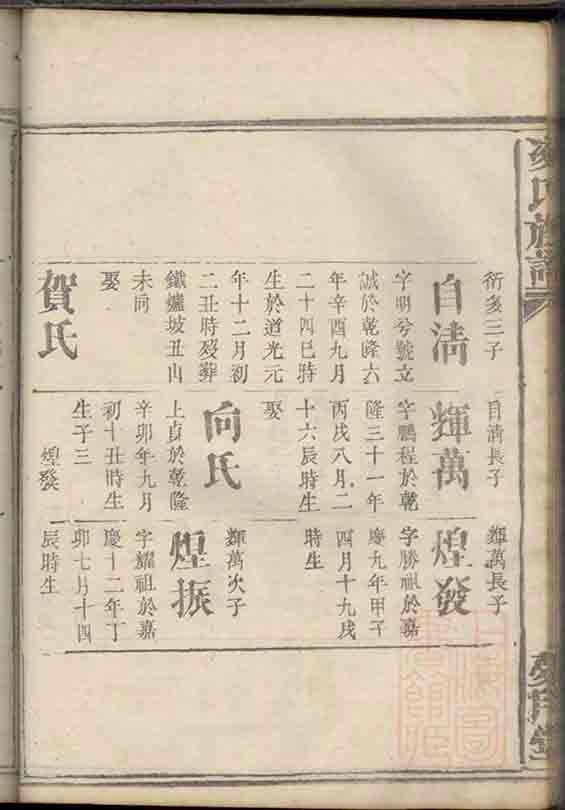 氏族譜
衍多三子
自清
字明兮號立
誠於乾隆六
年辛酉九月
二十四巳時
生於道光元
年十二月初
二丑時歿葬
鐵爐坡丑山
未向
娶
賀氏
自清長子
輝萬
字鵬程於乾
隆三十一年
丙戌八月二
十六辰時生
娶
向氏
上貞於乾隆
辛卯年九月
初十丑時生
生子三
煌發
輝萬長子
煌發
字勝祖於嘉
慶九年甲子
四月十九戌
時生
輝萬次子
煌振
字耀祖於嘉
慶十二年丁
卯七月十四
辰時生